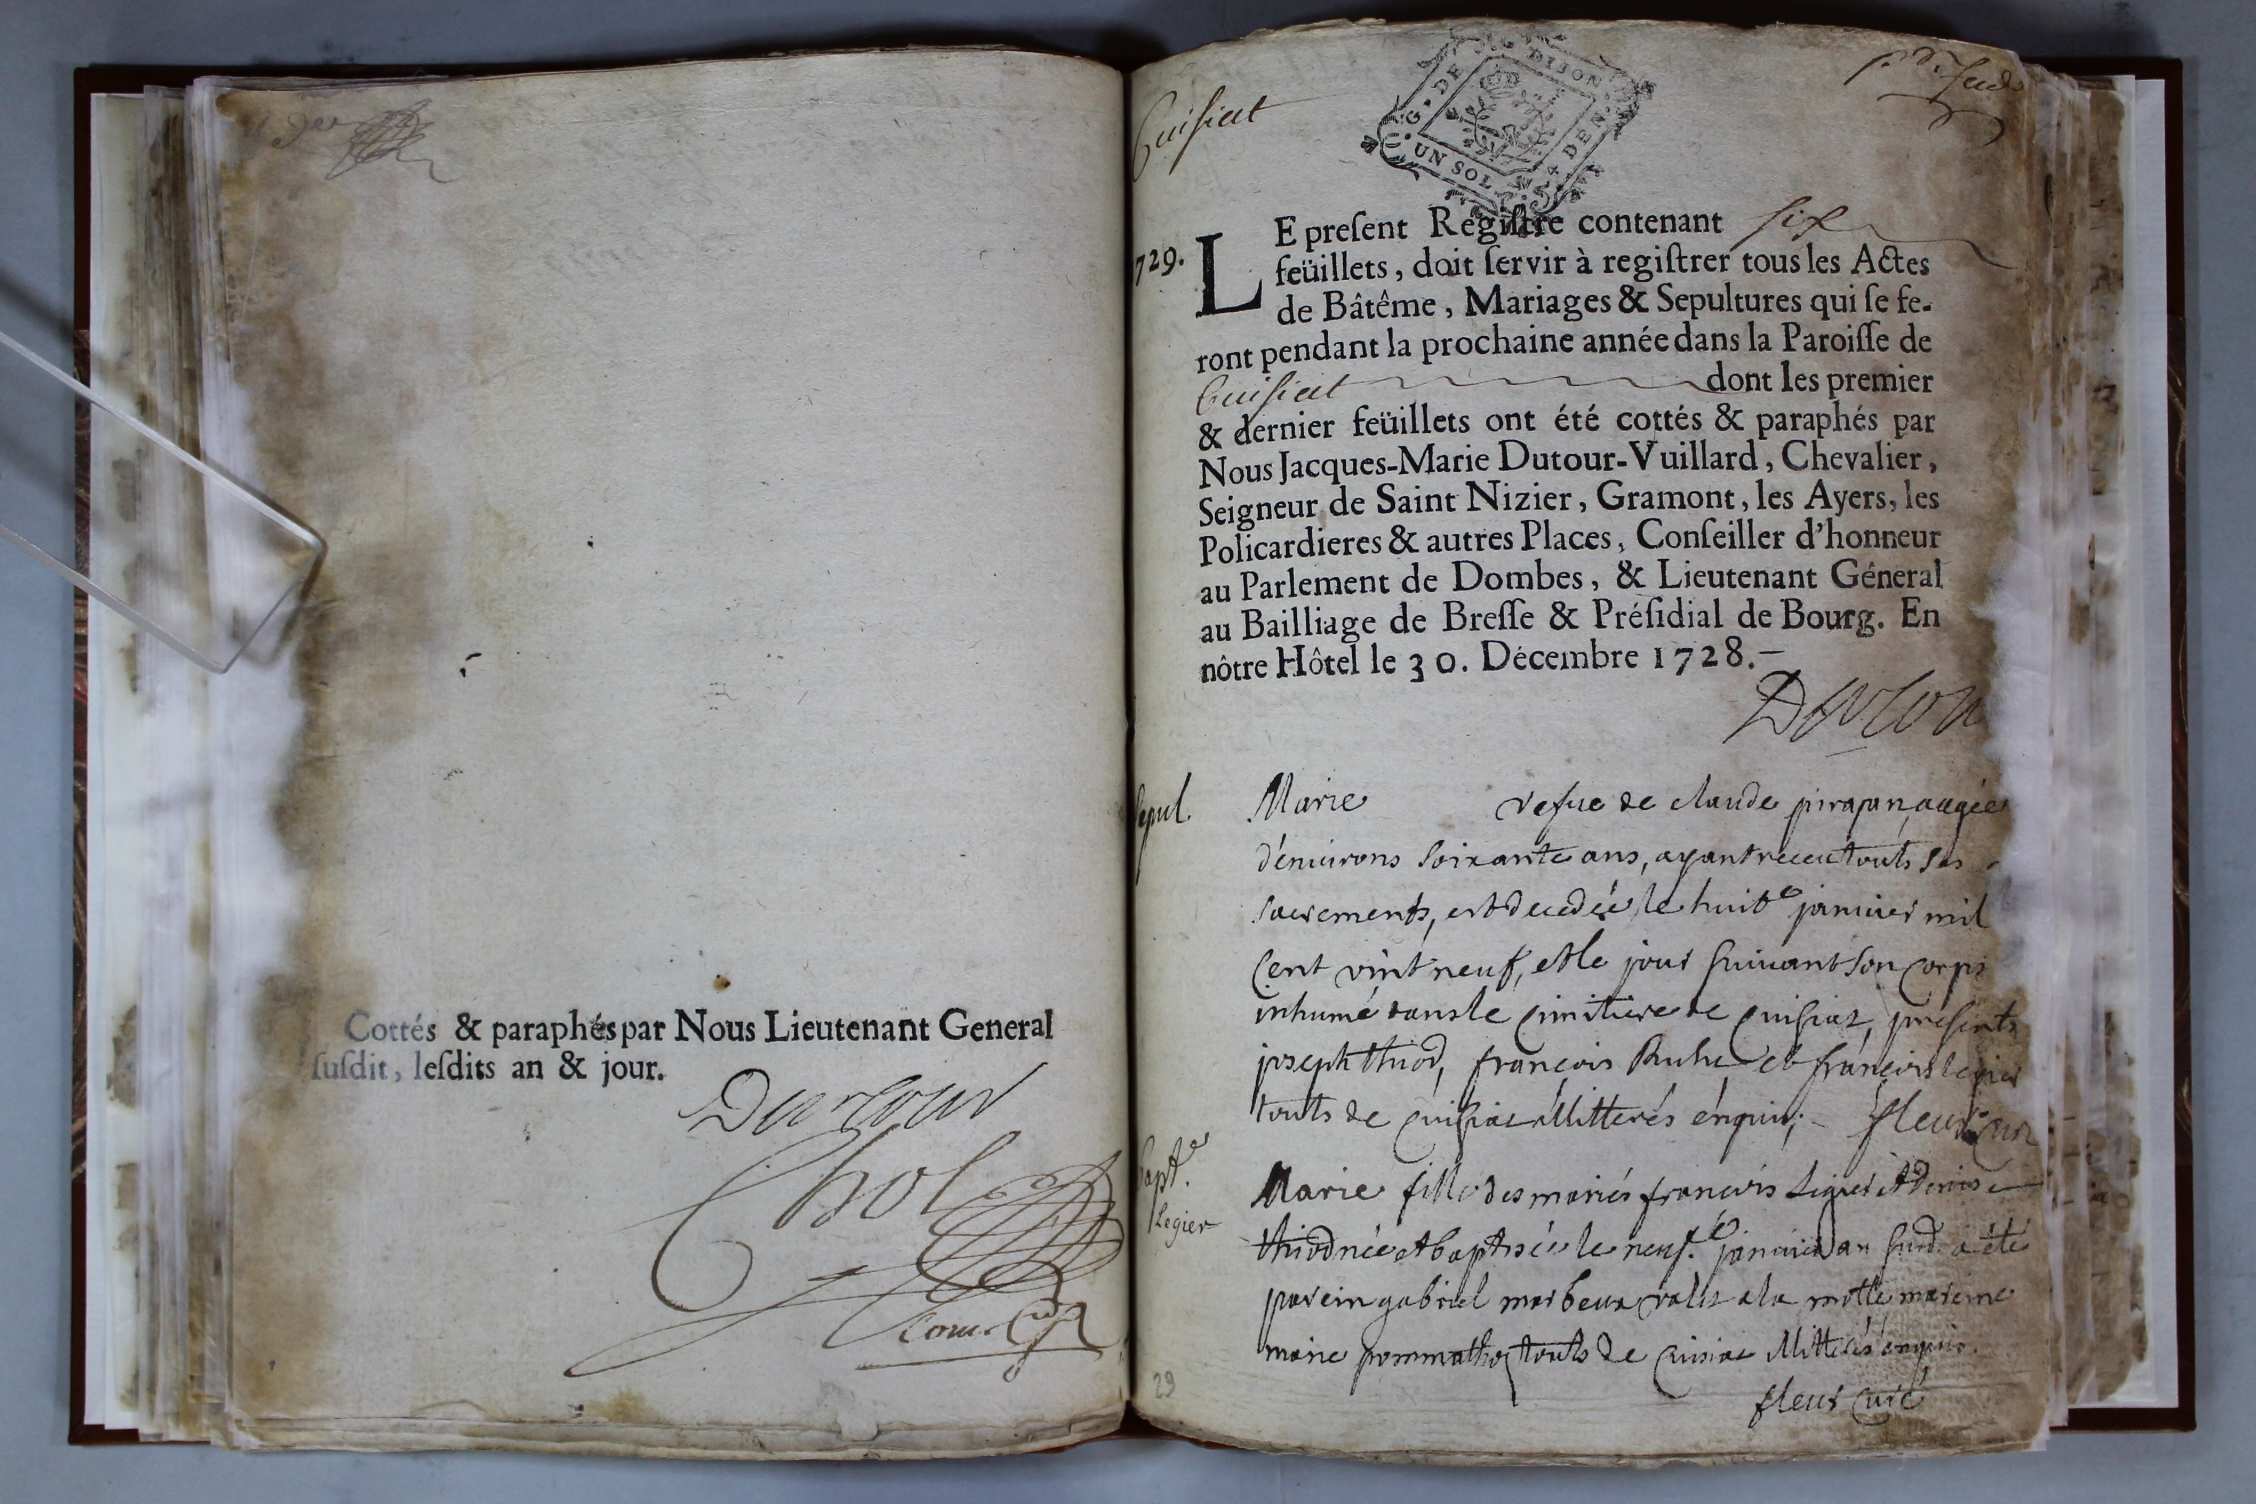 Cottés & paraphés par Nous Lieutenant General
ſuſdit, leſdits an & jour.
Dutour
Chol
Cuisiat
G. DE DIJON
UN SOL 4 DEN.
729.
LE preſent Regiſtre contenant six
feüillets, doit ſervir à regiſtrer tous les Actes
de Bâtême, Mariages & Sepultures qui ſe fe-
ront pendant la prochaine année dans la Paroiſſe de
Cuisiat dont les premier
& dernier feüillets ont été cottés & paraphés par
Nous Jacques-Marie Dutour-Vuillard, Chevalier,
Seigneur de Saint Nizier, Gramont, les Ayers, les
Policardieres & autres Places, Conſeiller d'honneur
au Parlement de Dombes, & Lieutenant Géneral
au Bailliage de Breſſe & Préſidial de Bourg. En
nôtre Hôtel le 30. Décembre 1728.—
Dutou
Sepul.
Marie vefue de claude pirapan, aagée
d'enuirons soixante ans, ayant receu touts ses
sacrements, est decedée le huite januier mil
cent vint neuf, et le jour suiuant son corps
inhumé dans le cimitiere de cuisiat, presents
joseph thiod, françois et françois legier
touts de cuisiat illitterés énquis; fleur curé
bapte.
Legier
Marie fille des mariés françois Legier et denise
thiod née et baptisée le neuf.e januier an susd. a été
parein gabriel marbeux valet a la motte mareine
marie pommathoz touts de cuisiat illitterés enquis.
fleur curé
29